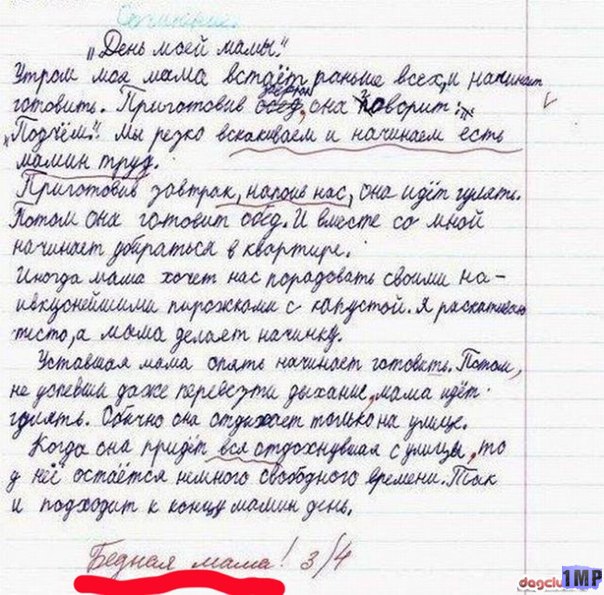 Сочинение.
„День моей мамы."
Утром моя мама встаёт раньше всех, и начинает
готовить. Приготовив завтрак, она говорит:
„Подъём." Мы резко вскакиваем и начинаем есть
мамин труд.
Приготовив завтрак, напоив нас, она идёт гулять.
Потом она готовит обед. И вместе со мной
начинает убираться в квартире.
Иногда мама хочет нас порадовать своими на-
ивкуснейшими пирожками с капустой. Я раскатываю
тесто, а мама делает начинку.
Уставшая мама опять начинает готовить. Потом,
не успевши даже перевезти дыхание, мама идёт
гулять. Обычно она отдыхает только на улице.
Когда она придёт вся отдохнувшая с улицы, то
у неё остаётся немного свободного времени. Так
и подходит к концу мамин день.
Бедная мама! 3/4
1MP